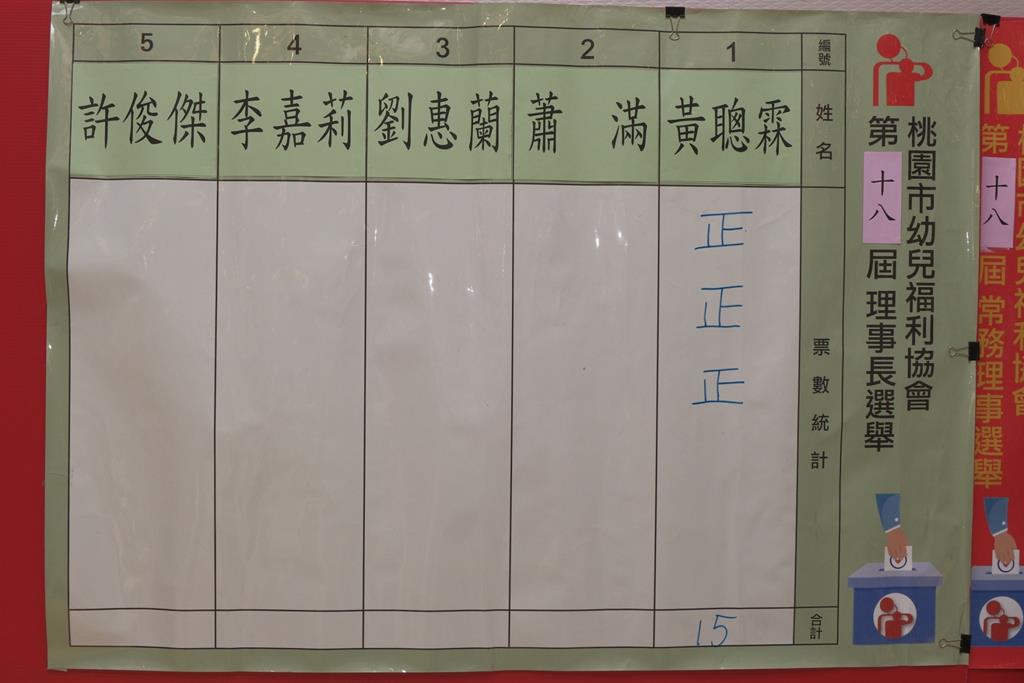 桃園市幼兒福利協會
第十八屆 理事長選舉
編號 1 2 3 4 5
姓名 黃聰霖 蕭滿 劉惠蘭 李嘉莉 許俊傑
票數統計
正
正
正
合計 15
第十八屆 常務理事選舉